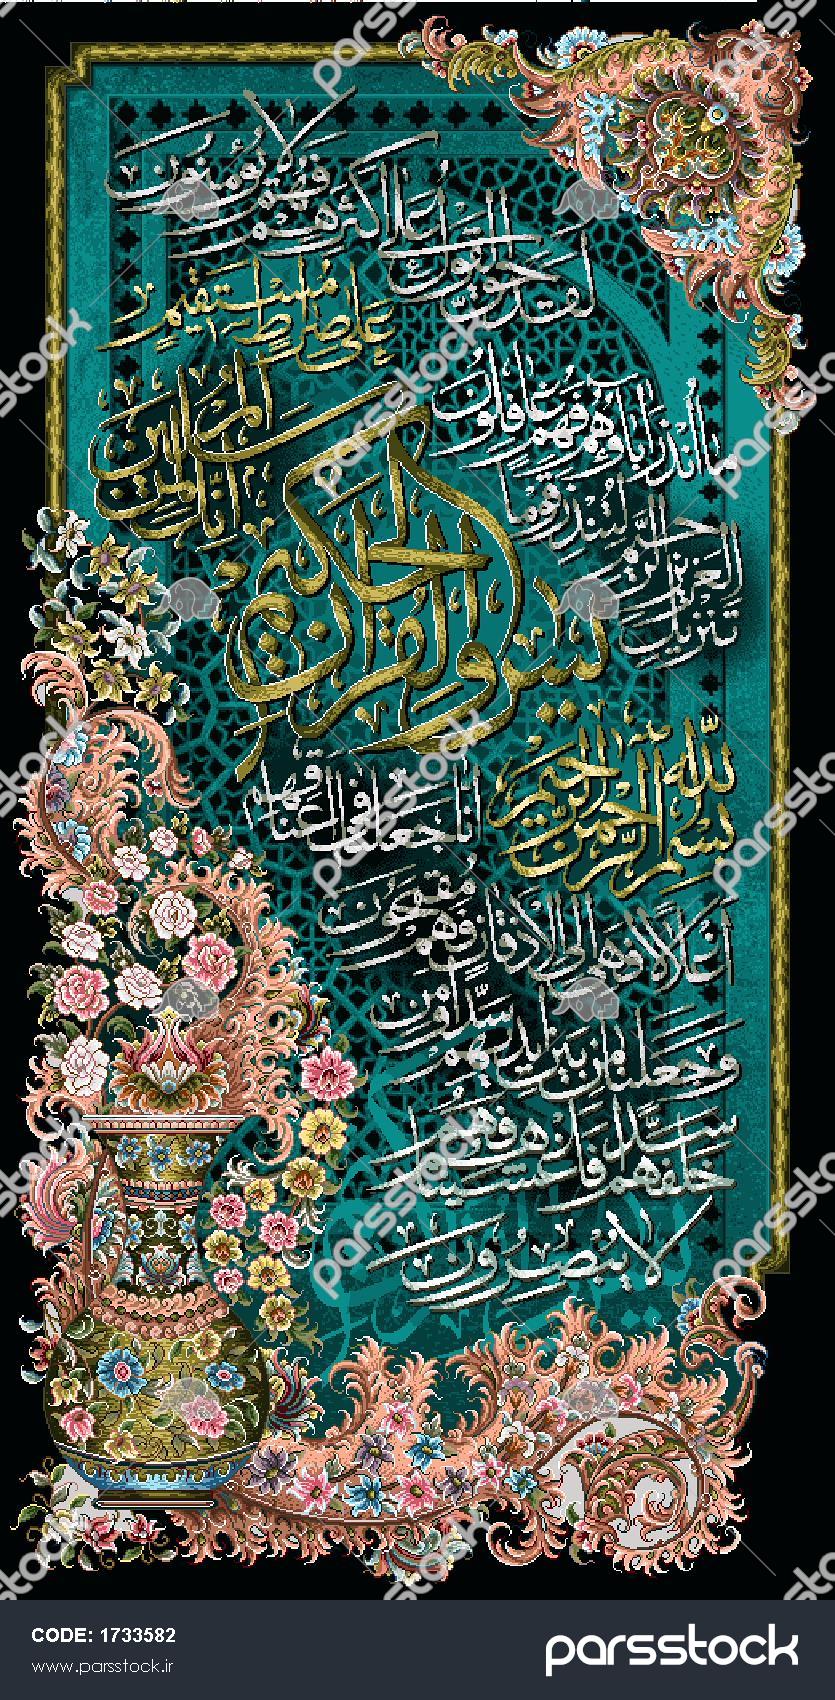 بسم الله الرحمن الرحیم
یس والقرآن الحکیم
انک لمن المرسلین
علی صراط مستقیم
تنزیل العزیز الرحیم
لتنذر قوما
ما انذر اباؤهم فهم غافلون
لقد حق القول علی اکثرهم فهم لا یؤمنون
انا جعلنا فی اعناقهم
اغلالا فهی الی الاذقان فهم مقمحون
وجعلنا من بین ایدیهم سدا ومن
خلفهم سدا فاغشیناهم فهم
لا یبصرون
parsstock
CODE: 1733582
www.parsstock.ir
parsstock